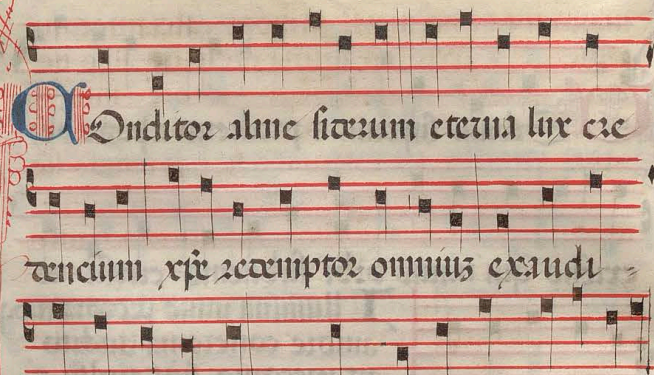 COnditor alme siderum eterna lux cre
dencium xpe redemptor omniuz exaudi